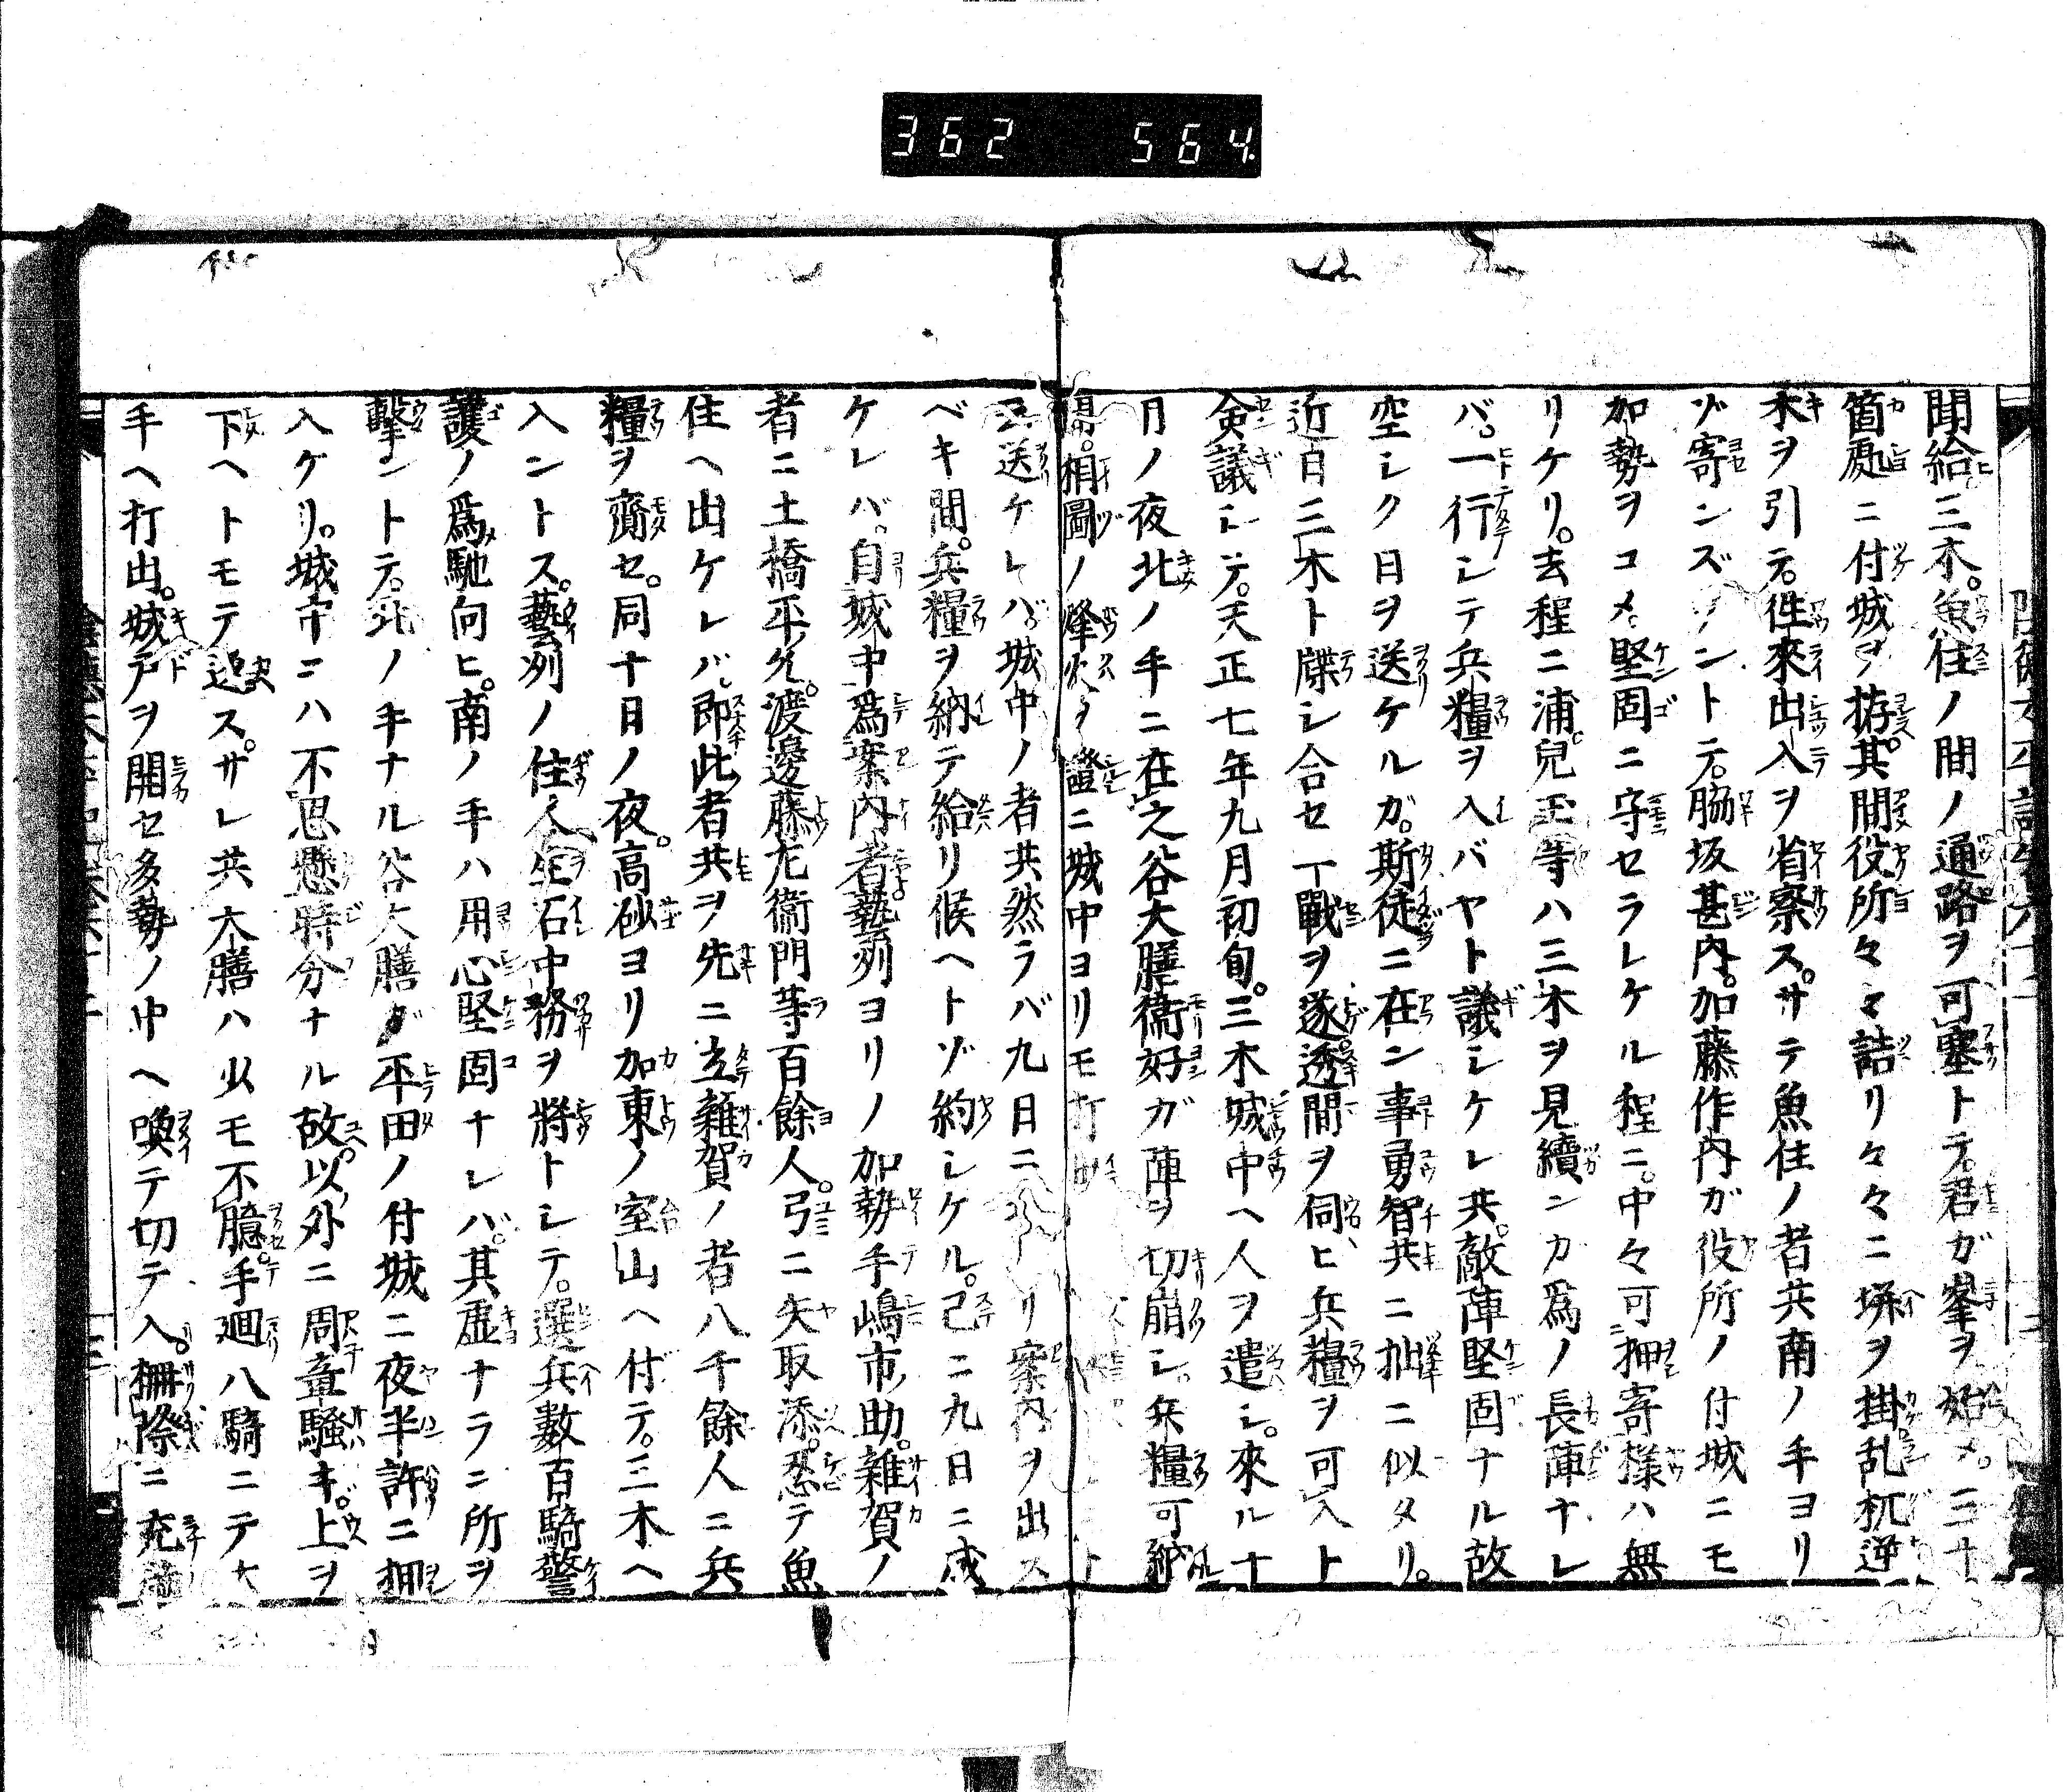 362 564.
聞給ヒ三木。魚住ノ間ノ通路ヲ可塞トテ。君ガ峯ヲ始メ。三十
箇処ニ付城ヲ拵。其間役所々々詰リ々々ニ塀ヲ掛乱杭逆
木ヲ引テ。往來出入ヲ省察ス。サテ魚住ノ者共南ノ手ヨリ
ゾ寄ンズラントテ。脇坂甚内。加藤作内ガ役所ノ付城ニモ
加勢ヲコメ。堅固ニ守セラレケル程ニ。中々可押寄様ハ無
リケリ。去程ニ浦。兒玉等ハ三木ヲ見續ンガ爲ノ長陣ナレ
バ。一行シテ兵糧ヲ入バヤト議シケレ共。敵陣堅固ナル故
空シク日ヲ送ケルガ。斯徒ニ在ン事勇智共ニ拙ニ似タリ。
近日三木ト牒シ合セ一戰ヲ遂。透間ヲ伺ヒ兵糧ヲ可入ト
僉議シテ。天正七年九月初旬。三木城中ヘ人ヲ遣シ。來ル十
日ノ夜北ノ手ニ在之谷大膳衞好ガ陣ヲ切崩シ。兵糧可納
相圖ノ烽火ヲ證ニ城中ヨリモ打
云送ケレバ。城中ノ者共然ラバ九日ニ案内ヲ出ス
ベキ間。兵糧ヲ納テ給リ候ヘトゾ約シケル。已ニ九日ニ成
ケレバ。自城中爲案内者。藝列ヨリノ加勢手嶋市助。雜賀ノ
者ニ土橋平丞。渡邊藤左衞門等百餘人。弓ニ矢取添。忍テ魚
住ヘ出ケレバ。即此者共ヲ先ニ立雜賀ノ者八千餘人ニ兵
糧ヲ齎セ。同十日ノ夜。高砂ヨリ加東ノ室山ヘ付テ。三木ヘ
入ントス。藝列ノ住人生石中務ヲ將トシテ。選兵數百騎警
護ノ爲馳向ヒ。南ノ手ハ用心堅固ナレバ。其虚ナラン所ヲ
撃ントテ。北ノ手ナル谷大膳ガ平田ノ付城ニ夜半許ニ押
入ケリ。城中ニハ不思懸時分ナル故。以外ニ周章騷ギ。上ヲ
下ヘトモテ返ス。サレ共大膳ハ少モ不臆。手廻八騎ニテ大
手ヘ打出。城戸ヲ開セ多勢ノ中ヘ喚テ切テ入。柵際ニ充滿